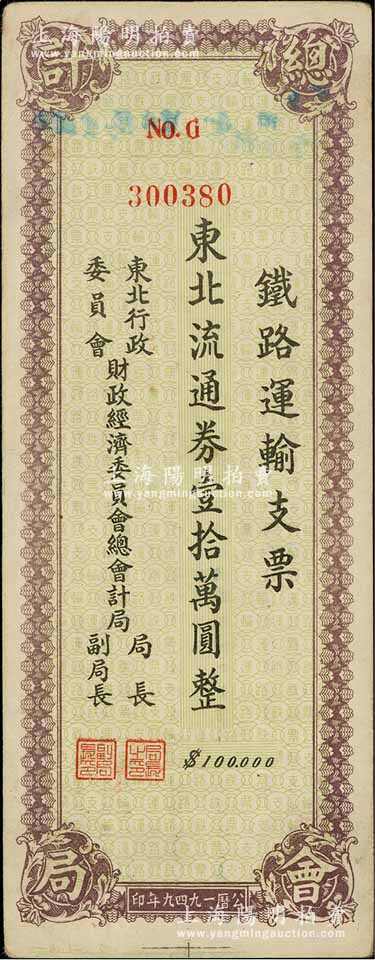 上海陽明拍賣
www.yangmingauction.com
總會計局
No. G
300380
鐵路運輸支票
東北流通券壹拾萬圓整
$100.000
東北行政委員會財政經濟委員會總會計局
局長
副局長
公曆一九四九年印
上海陽明拍賣
www.yangmingauction.com
上海陽明拍賣
www.yangmingauction.com